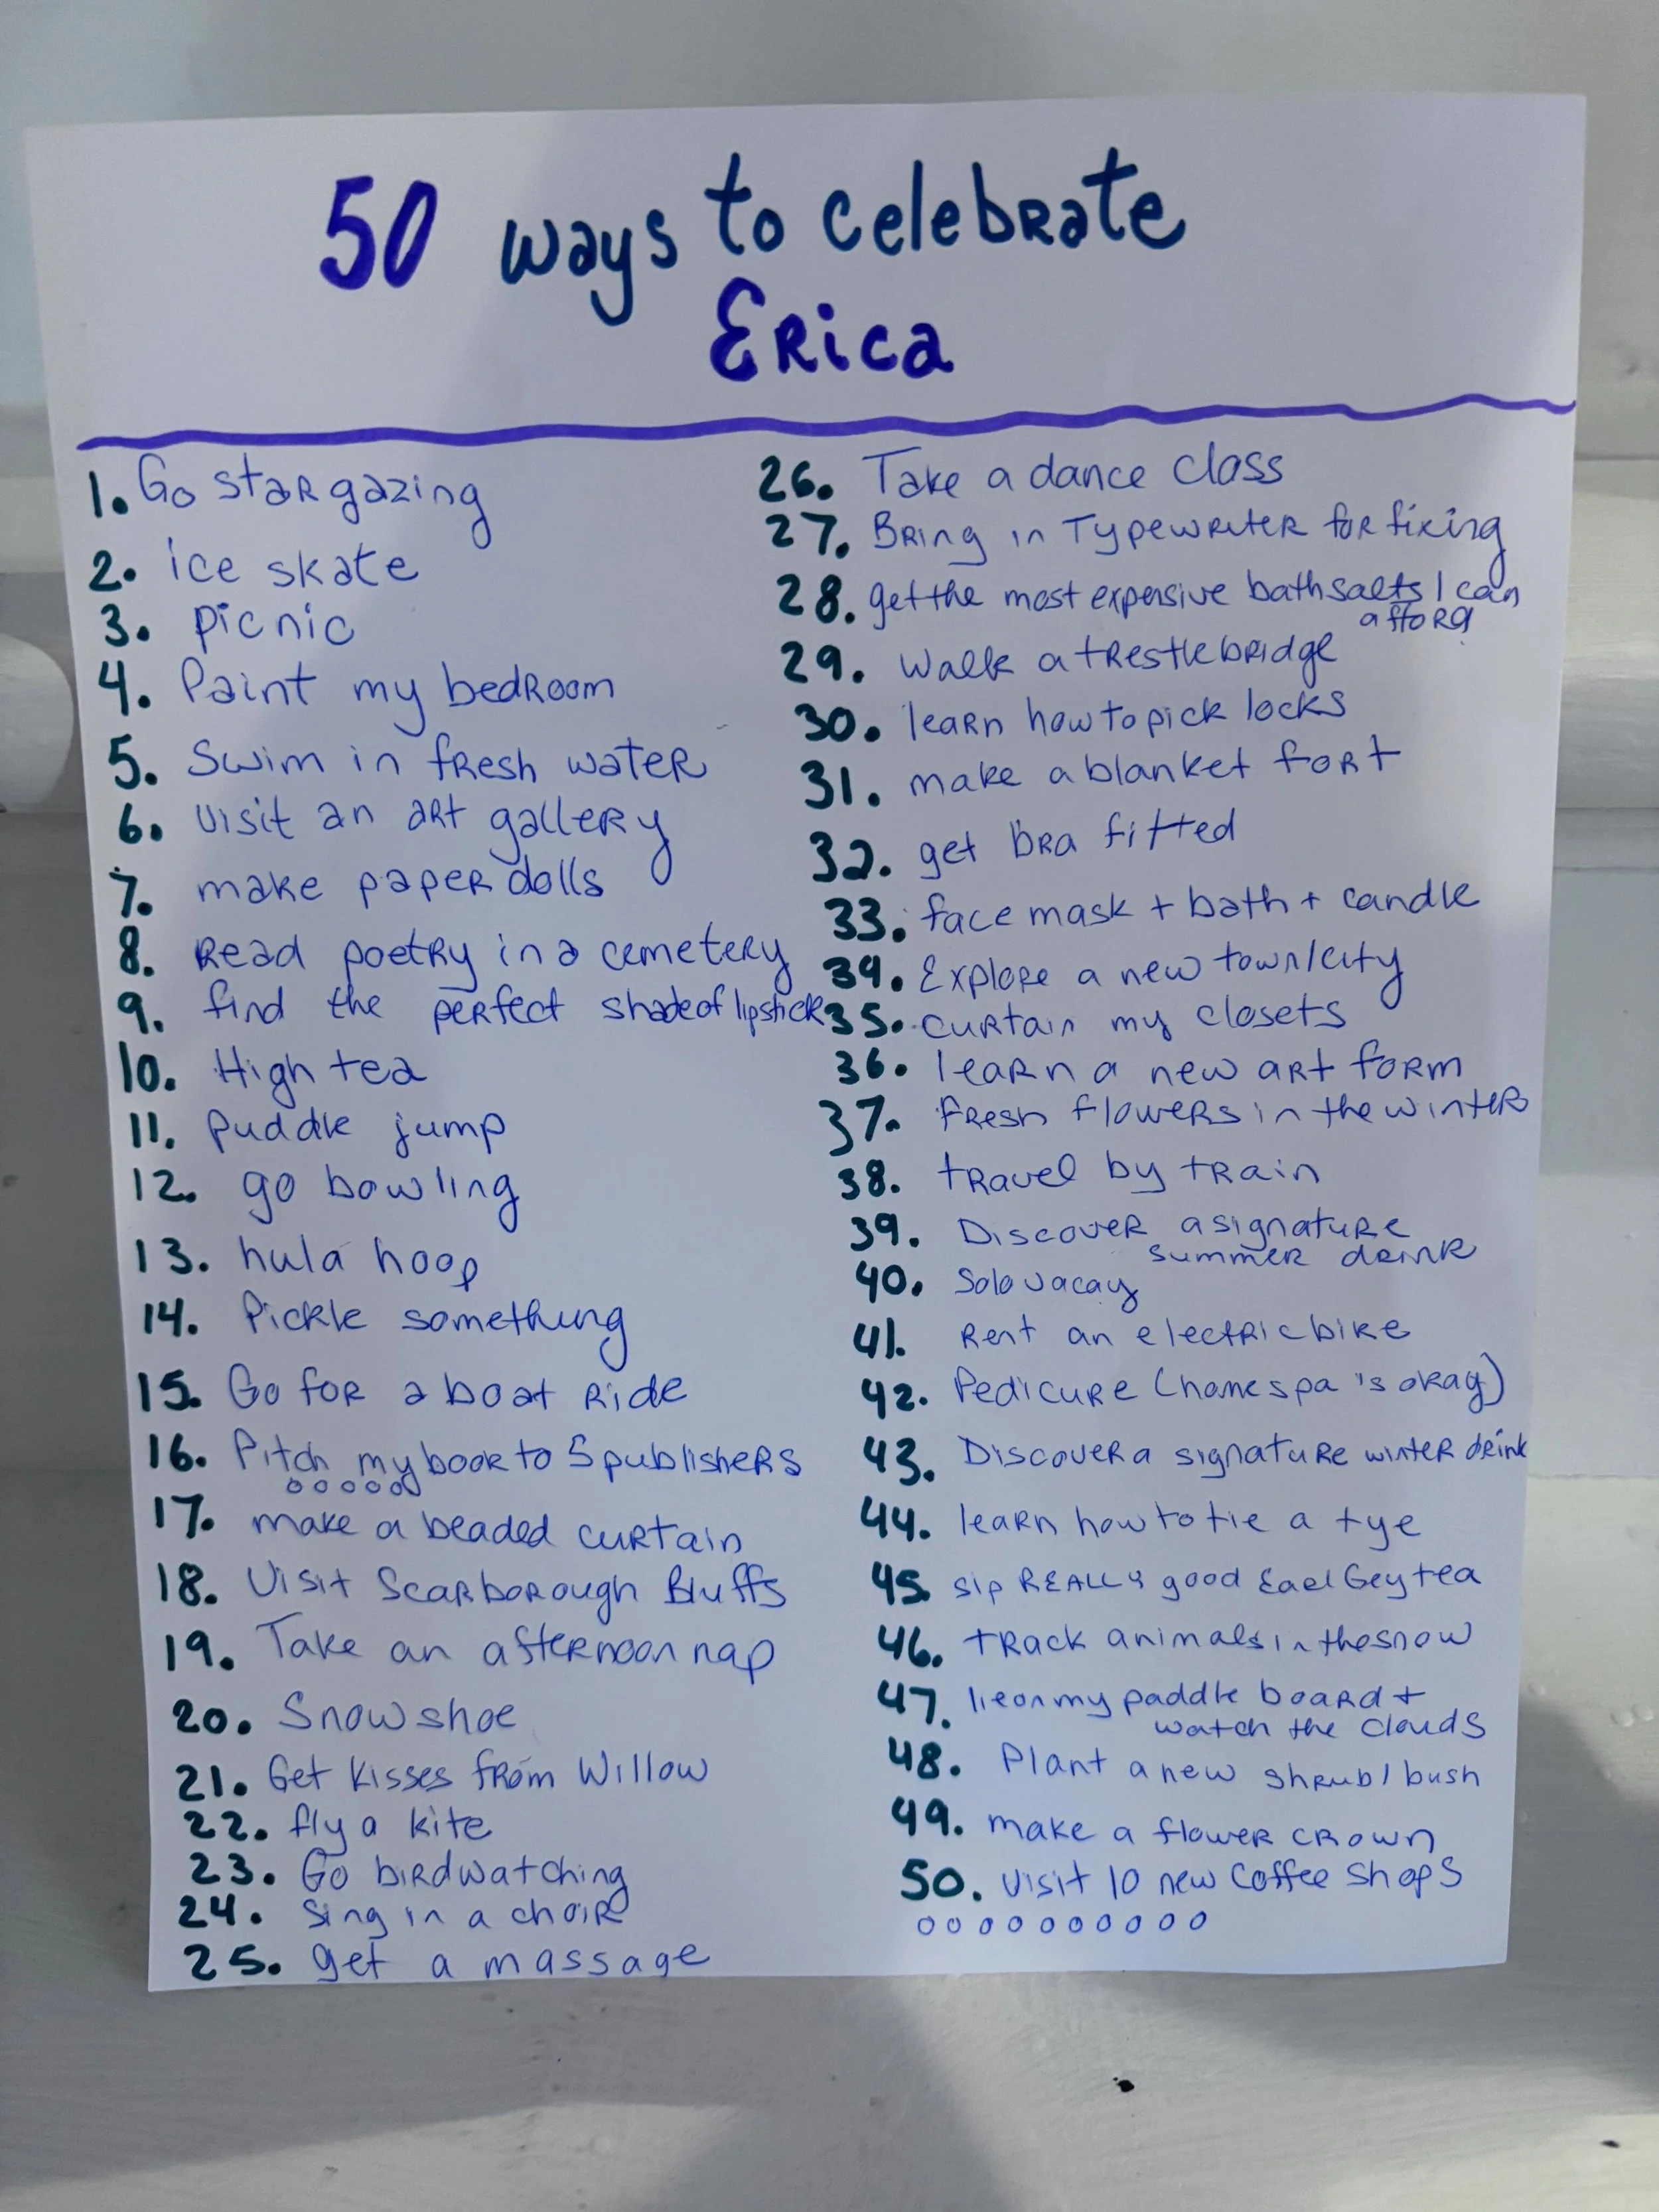 50 ways to celebrate
Erica
1. Go stargazing
2. ice skate
3. picnic
4. Paint my bedroom
5. Swim in fresh water
6. Visit an art gallery
7. make paper dolls
8. Read poetry in a cemetery
9. find the perfect shade of lipstick
10. High tea
11. puddle jump
12. go bowling
13. hula hoop
14. Pickle something
15. Go for a boat Ride
16. Pitch my book to 5 publishers
17. make a beaded curtain
18. Visit Scarborough Bluffs
19. Take an afternoon nap
20. Snowshoe
21. Get kisses from Willow
22. fly a kite
23. Go birdwatching
24. Sing in a choir
25. get a massage
26. Take a dance class
27. Bring in Typewriter for fixing
28. get the most expensive bath salts I can
afford
29. Walk a trestle bridge
30. learn how to pick locks
31. make a blanket fort
32. get bra fitted
33. face mask + bath + candle
34. Explore a new town/city
35. curtain my closets
36. learn a new art form
37. Fresh flowers in the winter
38. travel by train
39. Discover a signature
summer drink
40. Solo vacay
41. Rent an electric bike
42. Pedicure (home spa is okay)
43. Discover a signature winter drink
44. learn how to tie a tye
45. sip REALLY good Earl Gey tea
46. track animals in the snow
47. lie on my paddle board +
watch the clouds
48. Plant a new shrub/bush
49. make a flower crown
50. Visit 10 new Coffee Shops